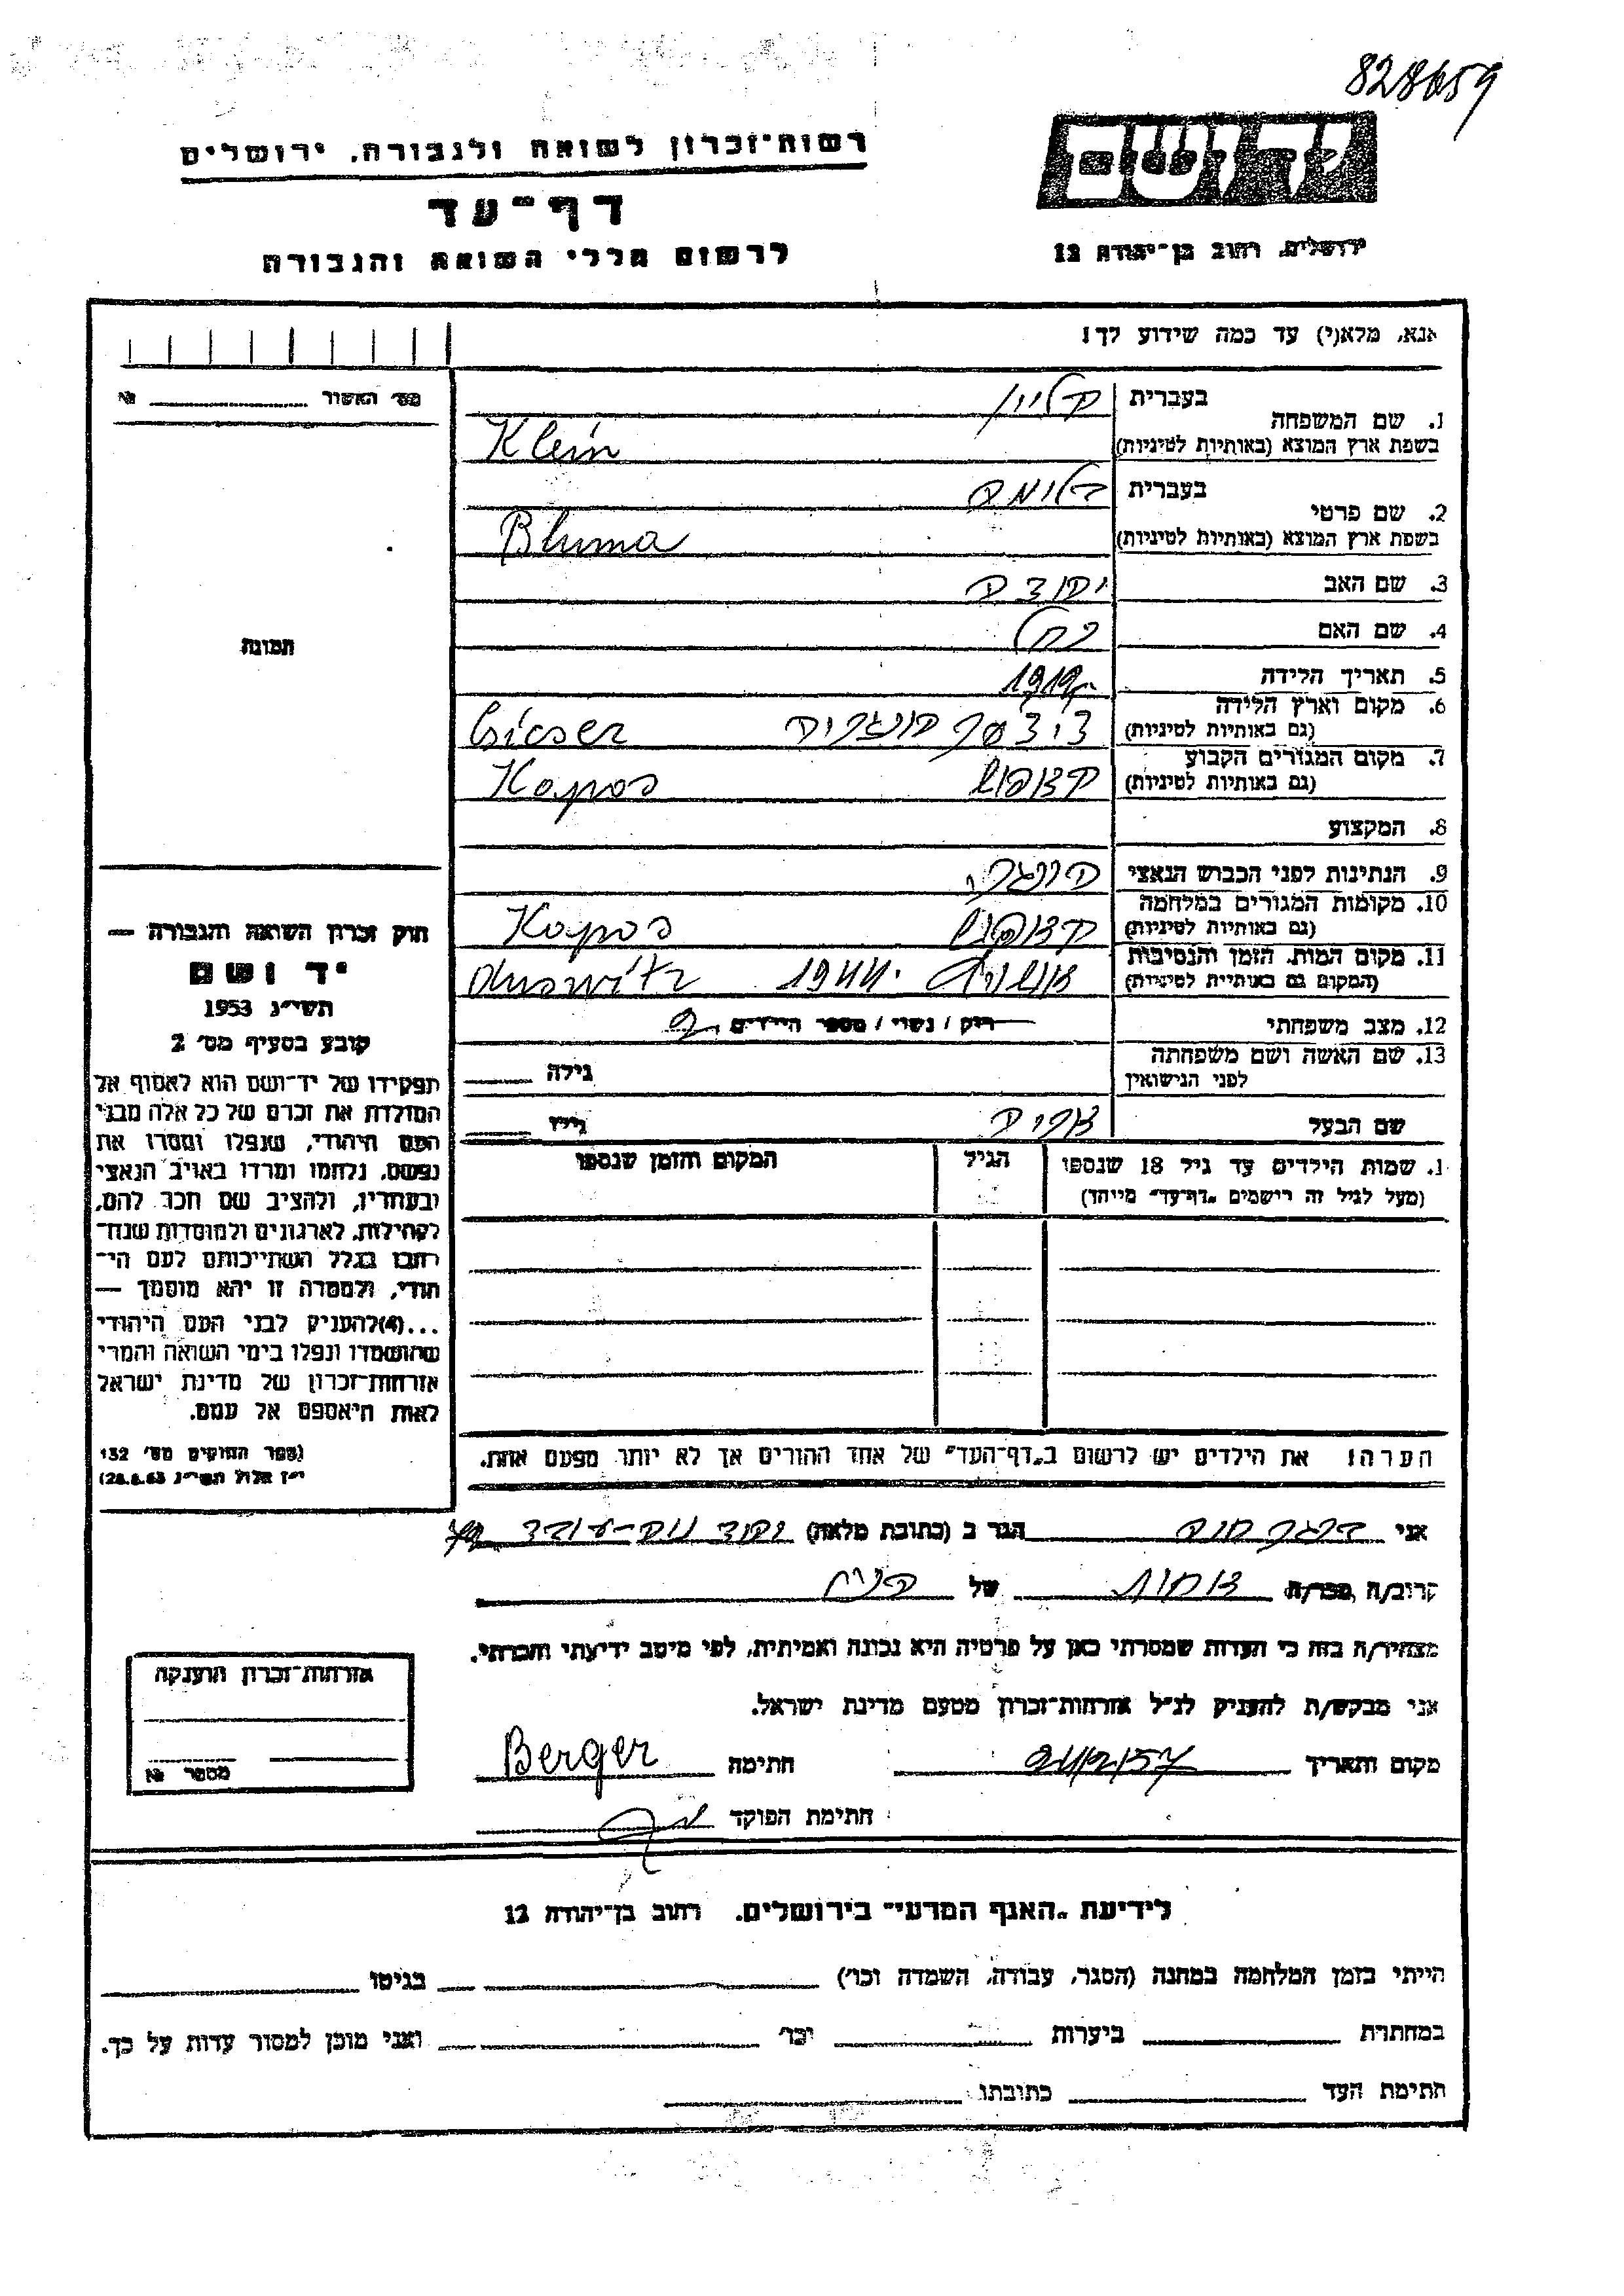 828659
יד ושם
רשות־זכרון לשואה ולגבורה, ירושלים
דף־עד
לרשום חללי השואה והגבורה
ירושלים, רחוב בן־יהודה 12
אנא, מלא(י) עד כמה שידוע לך!
מס׳ האשור № 
1. שם המשפחה
בעברית קליין
בשפת ארץ המוצא (באותיות לטיניות) Klein
2. שם פרטי
בעברית בלומה
בשפת ארץ המוצא (באותיות לטיניות) Bluma
3. שם האב
4. שם האם רחל
5. תאריך הלידה 1919
6. מקום וארץ הלידה
(גם באותיות לטיניות) הונגריה Csicser
7. מקום המגורים הקבוע
(גם באותיות לטיניות) קאפוש Kapos
8. המקצוע
9. הנתינות לפני הכבוש הנאצי הונגרי
10. מקומות המגורים במלחמה
(גם באותיות לטיניות) קאפוש Kapos
11. מקום המות, הזמן והנסיבות
(המקום גם באותיות לטיניות) אושוויץ 1944
12. מצב משפחתי רווק / נשוי / מספר הילדים 2
13. שם האשה ושם משפחתה
לפני הנישואין גילה
שם הבעל גילו
1. שמות הילדים עד גיל 18 שנספו
(מעל לגיל זה רישמים „דף־עד” מייחד)
הגיל
המקום והזמן שנספו
הערה! את הילדים יש לרשום ב„דף־העד” של אחד ההורים אך לא יותר מפעם אחת.
תמונה
חוק זכרון השואה והגבורה —
יד ושם
תשי״ג 1953
קובע בסעיף מס׳ 2
תפקידו של יד־ושם הוא לאסוף אל
המולדת את זכרם של כל אלה מבני
העם היהודי, שנפלו ומסרו את
נפשם, נלחמו ומרדו באויב הנאצי
ובעוזריו, ולהציב שם וזכר להם,
לקהילות, לארגונים ולמוסדות שנח־
רבו בגלל השתייכותם לעם הי־
הודי, ולמטרה זו יהא מוסמך —
...(4) להעניק לבני העם היהודי
שהושמדו ונפלו בימי השואה והמרי
אזרחות־זכרון של מדינת ישראל
לאות היאספם אל עמם.
(ספר החוקים מס׳ 132
י״ז אלול תשי״ג 28.8.53)
אני ברגר חנה הגר ב (כתובת מלאה)
קרוב/ה מכר/ה אחות של הנ״ל
מצהיר/ה בזה כי העדות שמסרתי כאן על פרטיה היא נכונה ואמיתית, לפי מיטב ידיעתי והכרתי.
אני מבקש/ת להעניק לנ״ל אזרחות־זכרון מטעם מדינת ישראל.
מקום ותאריך חתימה Berger
חתימת הפוקד
אזרחות־זכרון הוענקה
מספר №
לידיעת „האגף המדעי” בירושלים, רחוב בן־יהודה 12
הייתי בזמן המלחמה במחנה (הסגר, עבודה, השמדה וכו׳) בגיטו
במחתרת ביערות וכו׳ ואני מוכן למסור עדות על כך.
חתימת העד כתובתו